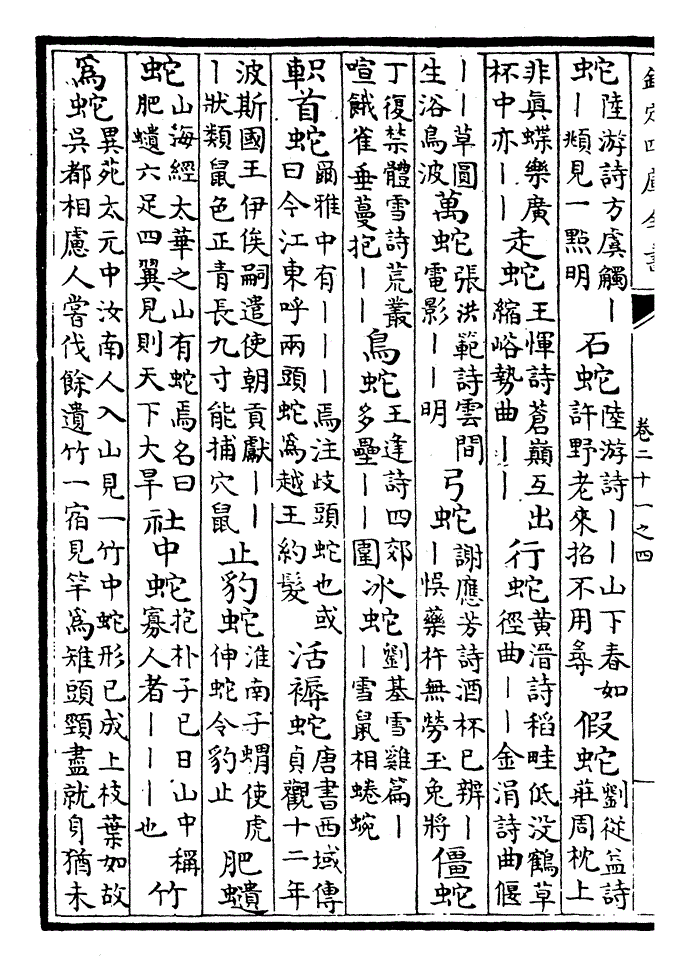 欽定四庫全書 卷二十一之四
蛇陸游詩方虞觸｜｜頫見一點明 石蛇陸游詩｜｜山下春如許野老來招不用尋 假蛇劉從益詩莊周枕上
非眞蝶樂廣杯中亦｜｜ 走蛇王惲詩蒼巔互出縮峪勢曲｜｜ 行蛇黄溍詩稻畦低没鶴草徑曲｜｜金涓詩曲偃
｜｜草圓生浴鳥波 萬蛇張洪範詩雲間電影｜｜明 弓蛇謝應芳詩酒杯已辨｜｜悞藥杵無勞玉兔將 僵蛇
丁復禁體雪詩荒叢喧餓雀垂蔓抱｜｜ 鳥蛇王逢詩四郊多壘｜｜圍 冰蛇劉基雪雞篇｜｜雪鼠相蜷蜿
軹首蛇爾雅中有｜｜｜焉注歧頭蛇也或曰今江東呼兩頭蛇爲越王約髮 活褥蛇唐書西域傳貞觀十二年
波斯國王伊俟嗣遣使朝貢獻｜｜｜狀類鼠色正青長九寸能捕穴鼠 止豹蛇淮南子蝟使虎伸蛇令豹止 肥䗤
蛇山海經太華之山有蛇焉名曰肥䗤六足四翼見則天下大旱 社中蛇抱朴子巳日山中稱寡人者｜｜｜也 竹
爲蛇異苑太元中汝南人入山見一竹中蛇形已成上枝葉如故吳都相慮人嘗伐餘遺竹一宿見竿爲雉頭頸盡就身猶未